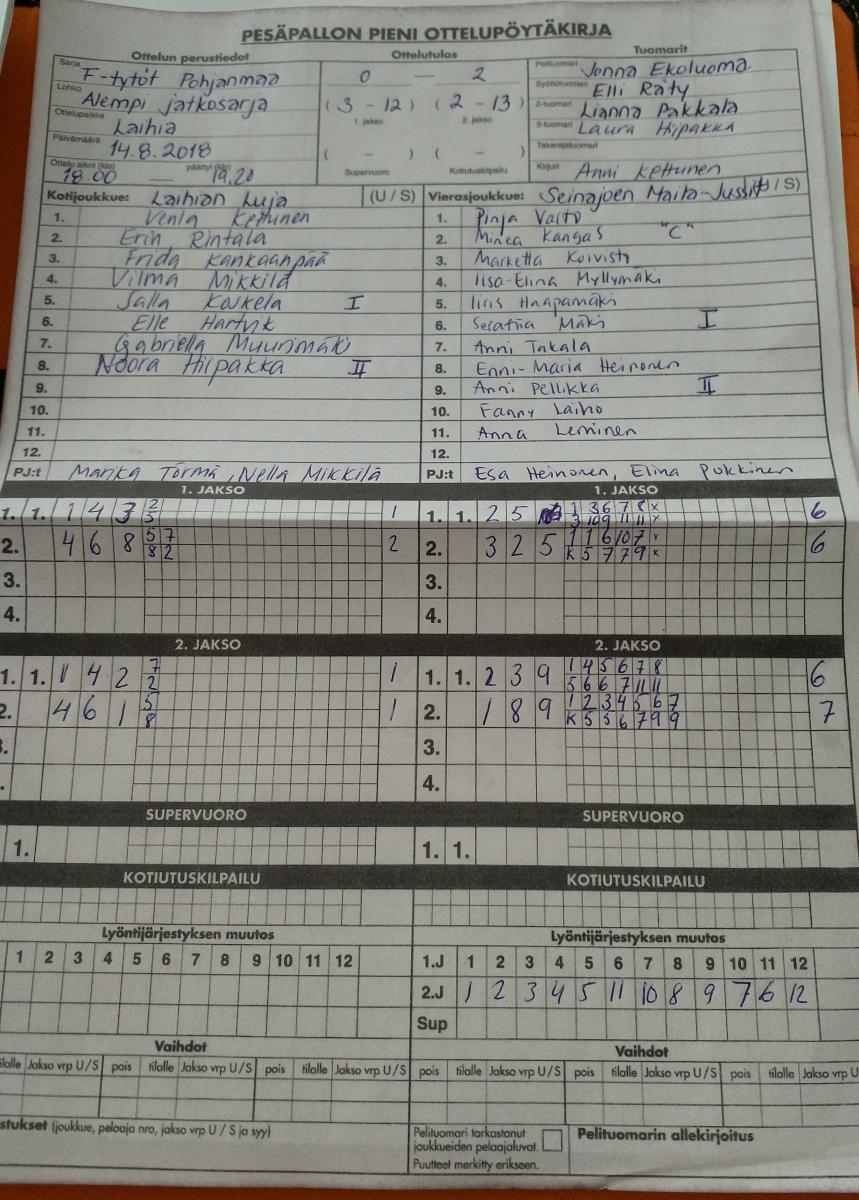 PESÄPALLON PIENI OTTELUPÖYTÄKIRJA
Ottelun perustiedot Ottelutulos Tuomarit
Sarja F-tytöt Pohjanmaa 0 — 2 Pelituomari Jonna Ekoluoma
Lohko Alempi jatkosarja (3 - 12) (2 - 13) Syöttötuomari Elli Räty
Ottelupaikka Laihia 1. jakso 2. jakso 2-tuomari Lianna Pakkala
Päivämäärä 14.8.2018 3-tuomari Laura Hiipakka
( - ) ( - ) Takarajatuomari
Ottelu alkoi (klo) 18.00 — päättyi (klo) 19.20 Supervuoro Kotiutuskilpailu Kirjuri Anni Kettunen
Kotijoukkue: Laihian Luja (U / S) Vierasjoukkue: Seinäjoen Maila-Jussit (U / S)
1. Venla Kettunen 1. Pinja Valto
2. Erin Rintala 2. Minea Kangas "C"
3. Frida Kankaanpää 3. Marketta Koivisto
4. Vilma Mikkilä 4. Iisa-Elina Myllymäki
5. Salla Koskela I 5. Iiris Haapamäki
6. Elle 6. Serafiia Mäki I
7. Gabriella Muurimäki 7. Anni Takala
8. Noora Hiipakka II 8. Enni-Maria Heinonen
9. 9. Anni Pellikka II
10. 10. Fanny Laiho
11. 11. Anna Leminen
12. 12.
PJ:t Marika Törmä, Nella Mikkilä PJ:t Esa Heinonen, Elina Pukkinen
1. JAKSO 1. JAKSO
1. 1. 1 4 3 2 1 1. 1. 2 5 1 3 6 7 8 x 6
5 3 10 9 11 11 x
2. 4 6 8 5 7 2 2. 3 2 5 1 1 6 10 7 x 6
8 2 K 5 7 7 9 x
3. 3.
4. 4.
2. JAKSO 2. JAKSO
1. 1. 1 4 2 7 1 1. 1. 2 3 9 1 4 5 6 7 8 6
2 5 6 6 7 11 11
2. 4 6 1 5 1 2. 1 8 9 1 2 3 4 5 6 7 7
8 K 5 5 6 7 9 9
3. 3.
. 4.
SUPERVUORO SUPERVUORO
1. 1. 1.
KOTIUTUSKILPAILU KOTIUTUSKILPAILU
Lyöntijärjestyksen muutos Lyöntijärjestyksen muutos
1 2 3 4 5 6 7 8 9 10 11 12 1.J 1 2 3 4 5 6 7 8 9 10 11 12
2.J 1 2 3 4 5 11 10 8 9 7 6 12
Sup
Vaihdot Vaihdot
tilalle Jakso vrp U/S pois tilalle Jakso vrp U/S pois tilalle Jakso vrp U/S pois tilalle Jakso vrp U/S pois tilalle Jakso vrp U/S pois tilalle Jakso vrp U
stukset (joukkue, pelaaja nro, jakso vrp U / S ja syy) Pelituomari tarkastanut joukkueiden pelaajaluvat. Pelituomarin allekirjoitus
Puutteet merkitty erikseen.